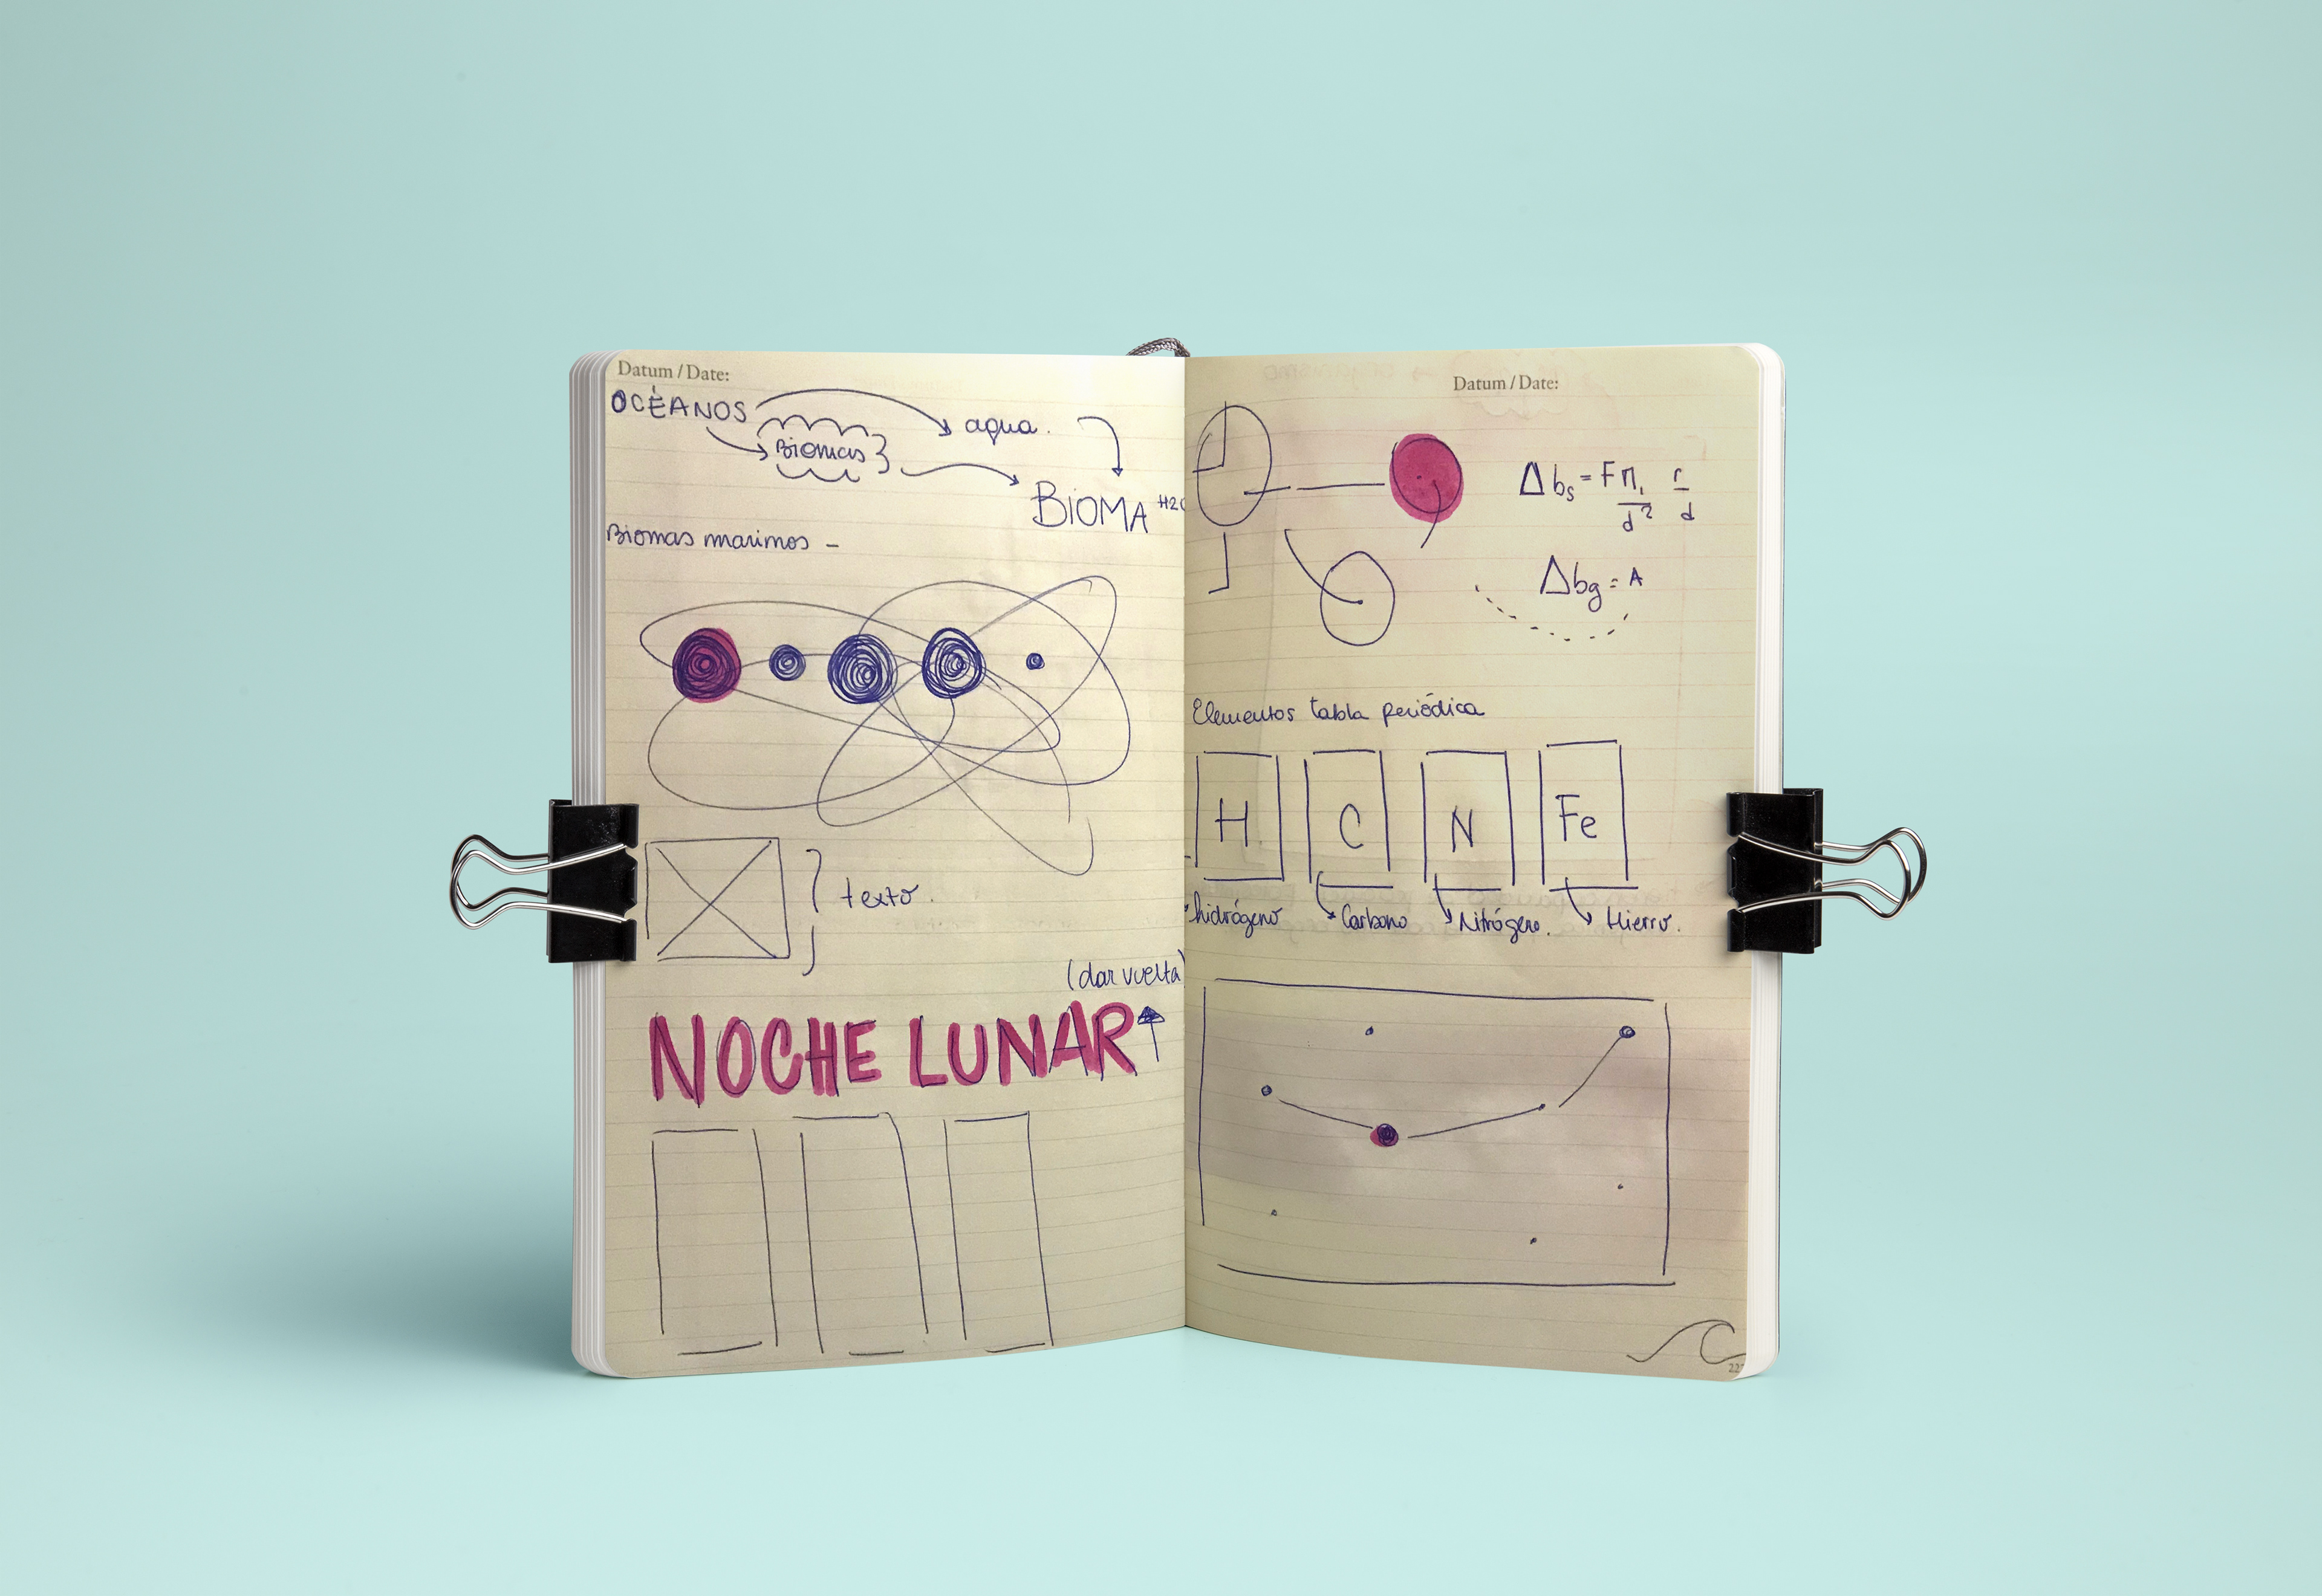 Datum / Date:
OCÉANOS
agua.
Biomas
BiOMA H2O
Biomas marimos -
texto.
(dar vuelta)
NOCHE LUNAR
Datum / Date:
Δbs = F π1 r
d² d
Δbg = A
Elementos tabla periódica
H C N Fe
hidrógeno Carbono Nitrógeno. Hierro.